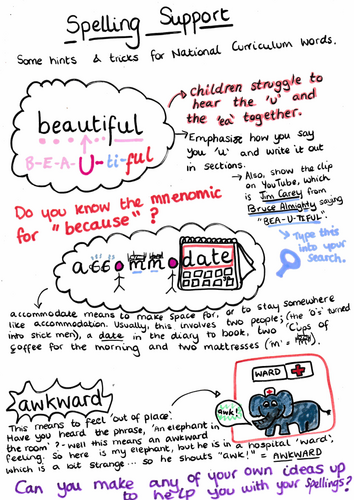 Spelling Support
Some hints & tricks for National Curriculum words.
beautiful
B-E-A-U-ti-ful
Children struggle to
hear the 'u' and
the 'ea' together.
Emphasise how you say
'u' and write it out
in sections.
Also, show the clip
on YouTube, which
is Jim Carey from
Bruce Almighty saying
"BEA-U-TEFUL".
Type this
into your
search.
Do you know the mnenomic
for "because"?
accommodate
accommodate means to make space for, or to stay somewhere
like accommodation. Usually, this involves two people; (the 'o's turned
into stick men), a date in the diary to book, two 'Cups of
Coffee for the morning and two mattresses ('m' =
awkward
This means to feel 'out of place'.
Have you heard the phrase, 'An elephant in
the room'? - well this means an awkward
feeling. So here is my elephant, but he is in a hospital 'ward',
which is a lot strange... so he shouts "awk!" = AWKWARD
WARD
awk!
Can you make any of your own ideas up
to help you with your spellings?